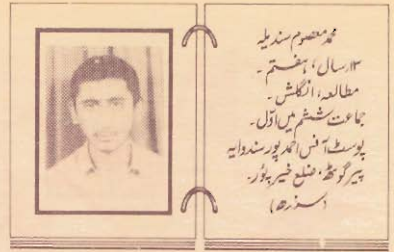 محمد معصوم سندیلہ
۱۳ سال، ہفتم۔
مطالعہ، انگلش۔
جماعت ششم میں اوّل۔
پوسٹ آفس احمد پور سندوایہ
پیر گوٹھ، ضلع خیر پور۔
(سندھ)